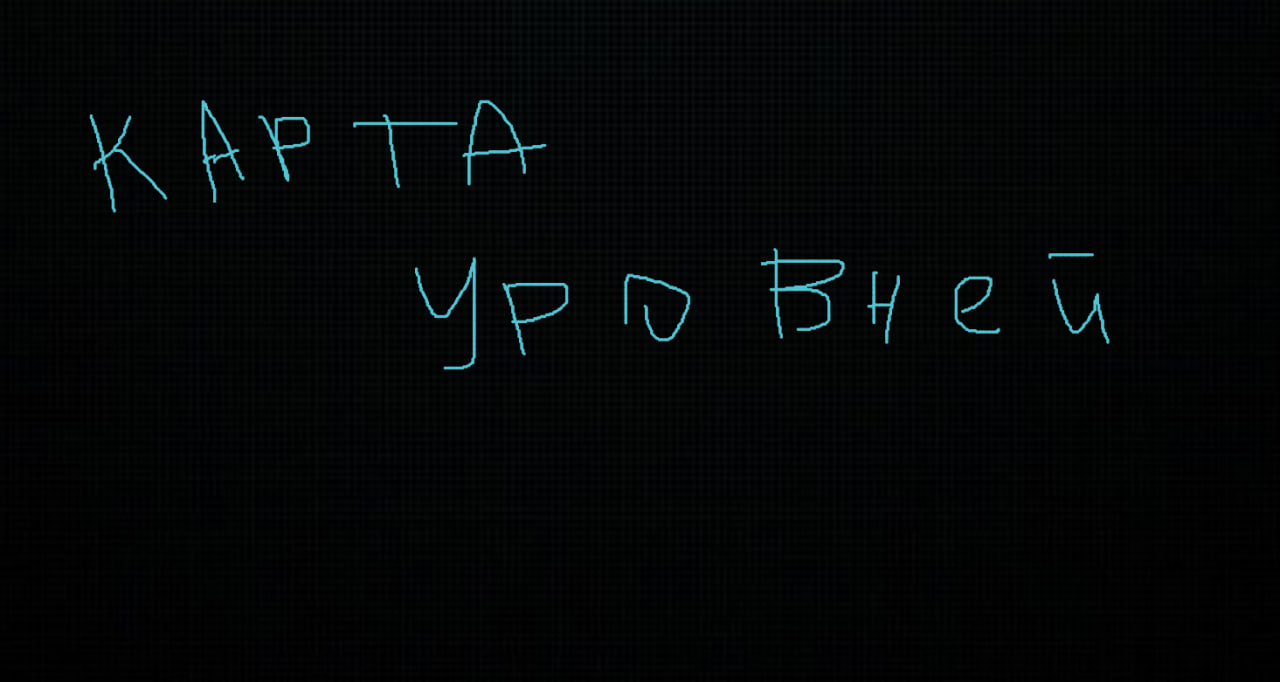 КАРТА
УРОВНей